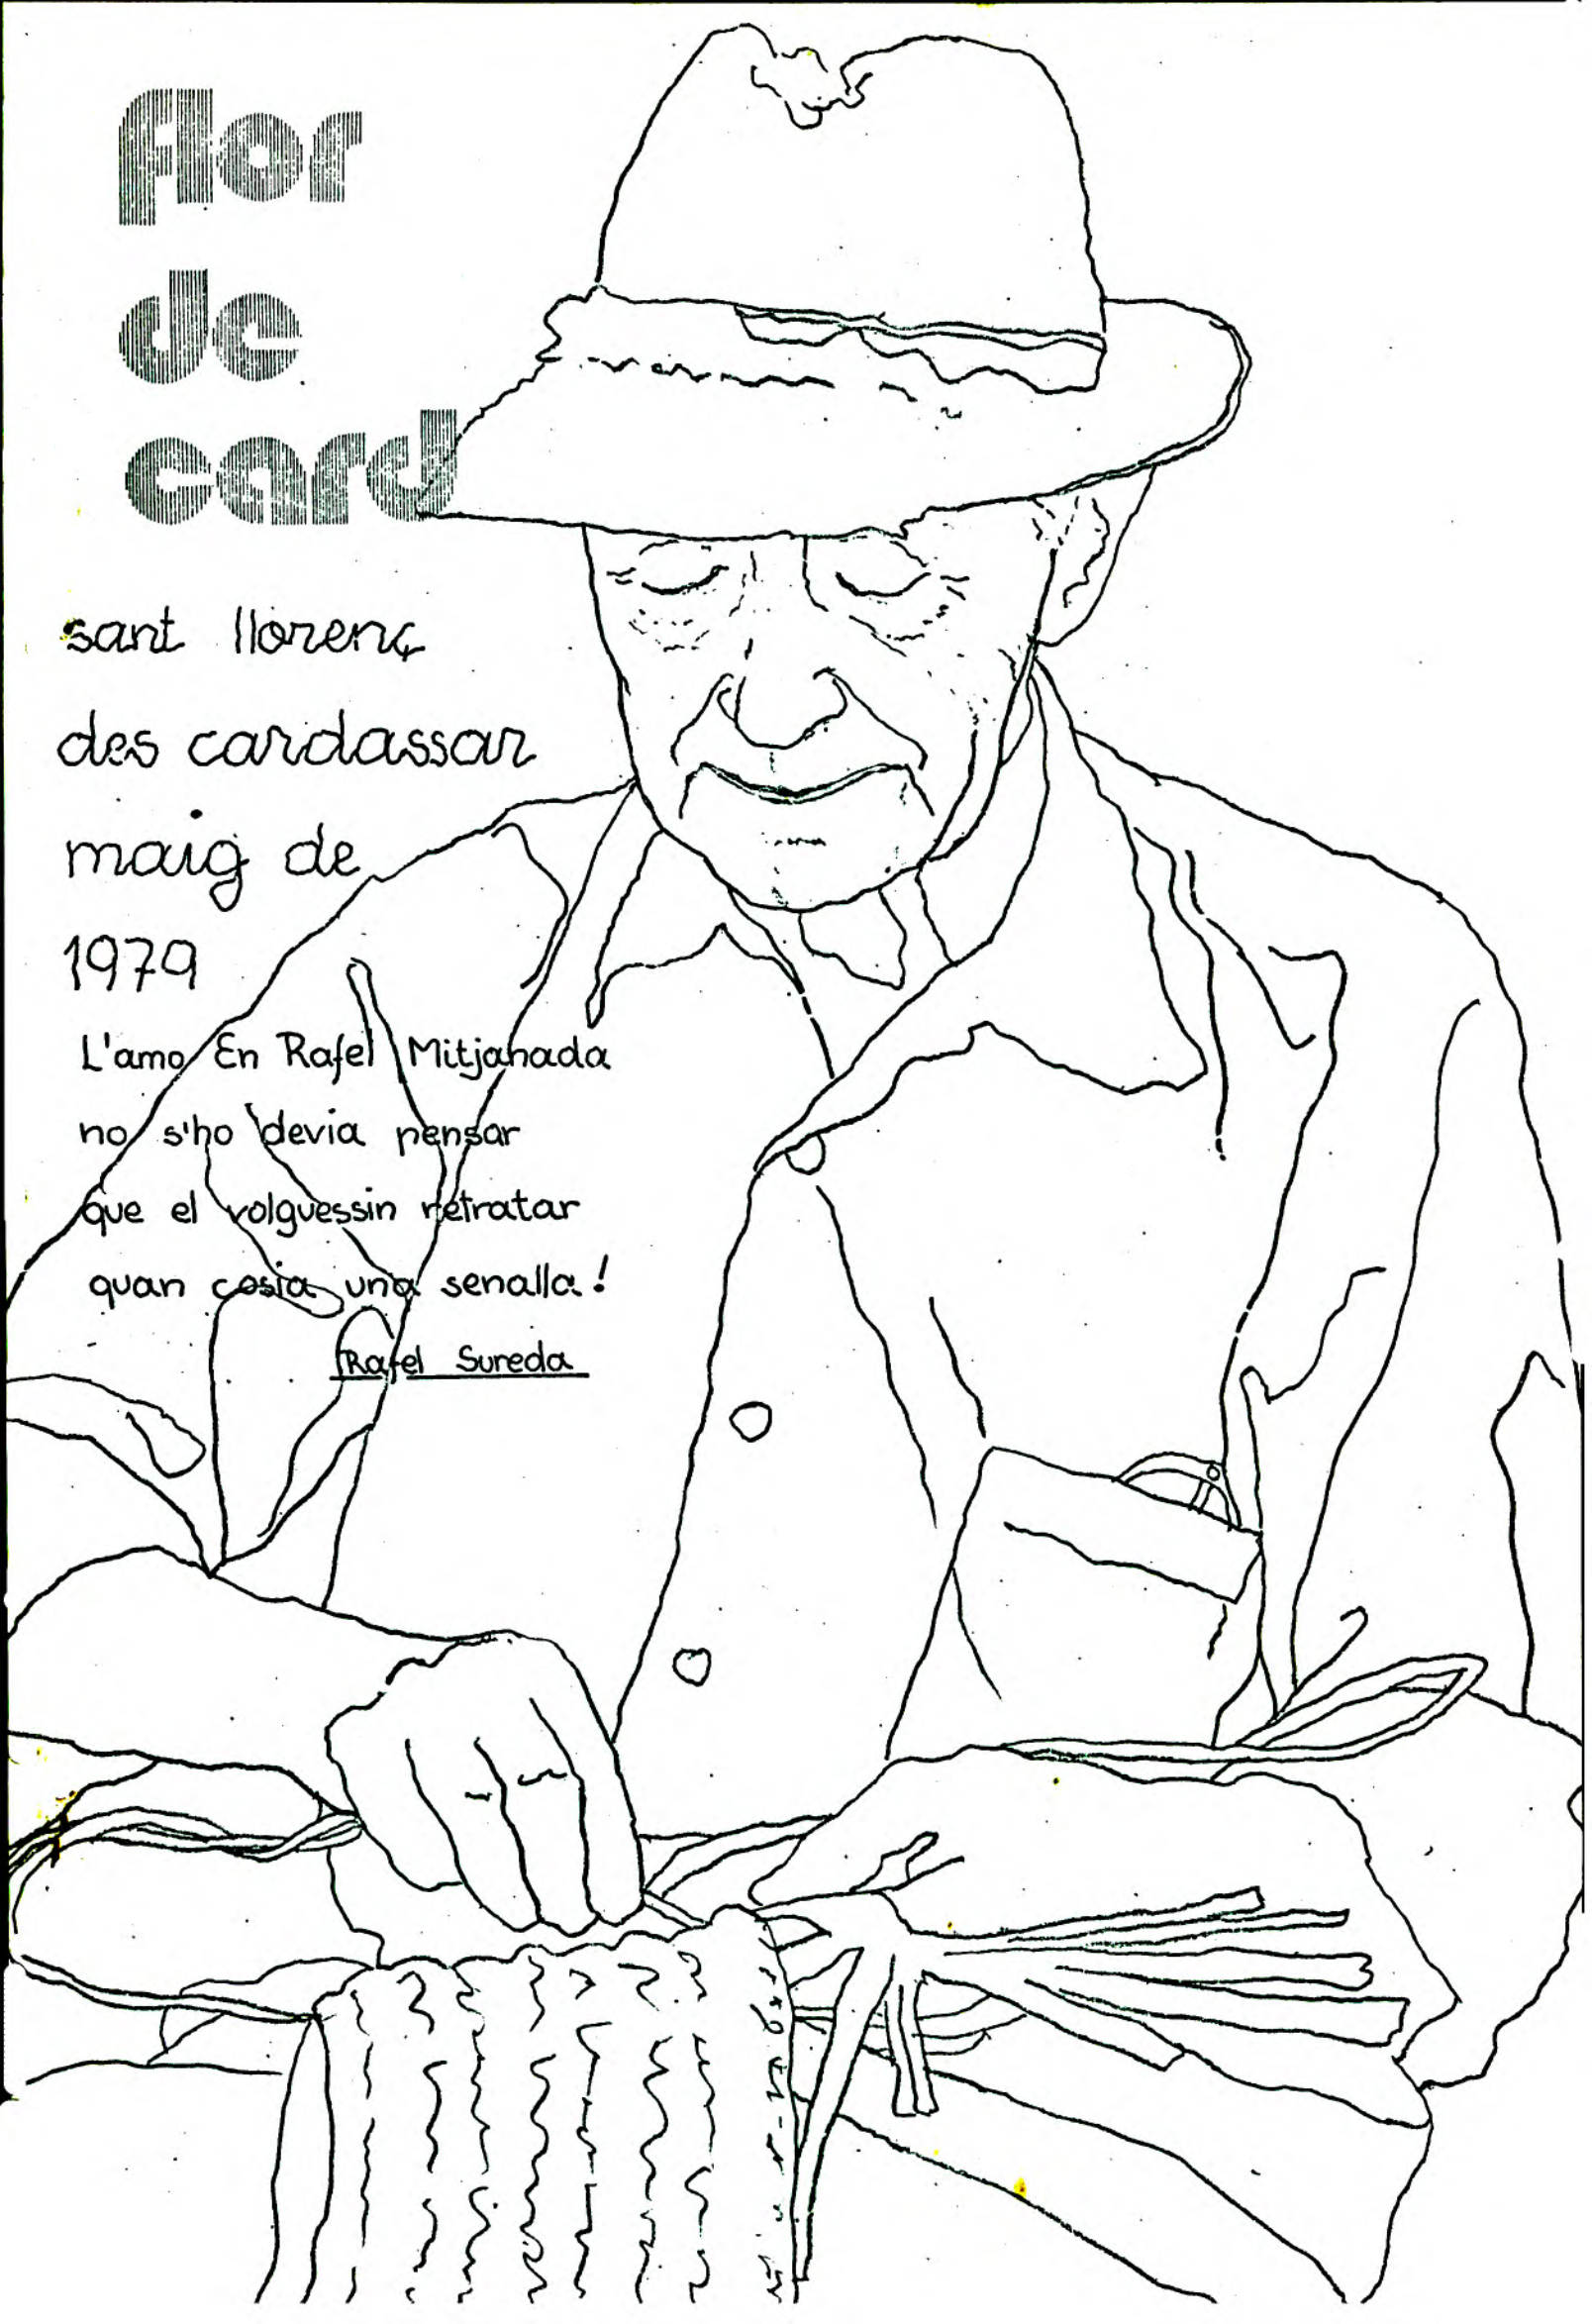 flor
de
card
sant llorenç
des cardassar
maig de
1979
L'amo En Rafel Mitjanada
no s'ho devia pensar
que el volguessin retratar
quan cosia una senalla!
Rafel Sureda